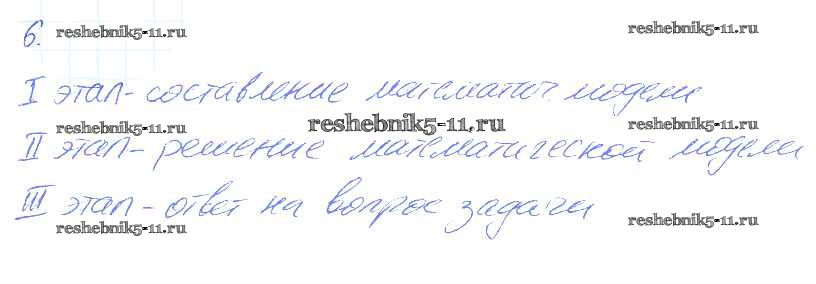 6.
reshebnik5-11.ru reshebnik5-11.ru
I этап - составление математич. модели
reshebnik5-11.ru reshebnik5-11.ru reshebnik5-11.ru
II этап - решение математической модели
III этап - ответ на вопрос задачи
reshebnik5-11.ru reshebnik5-11.ru